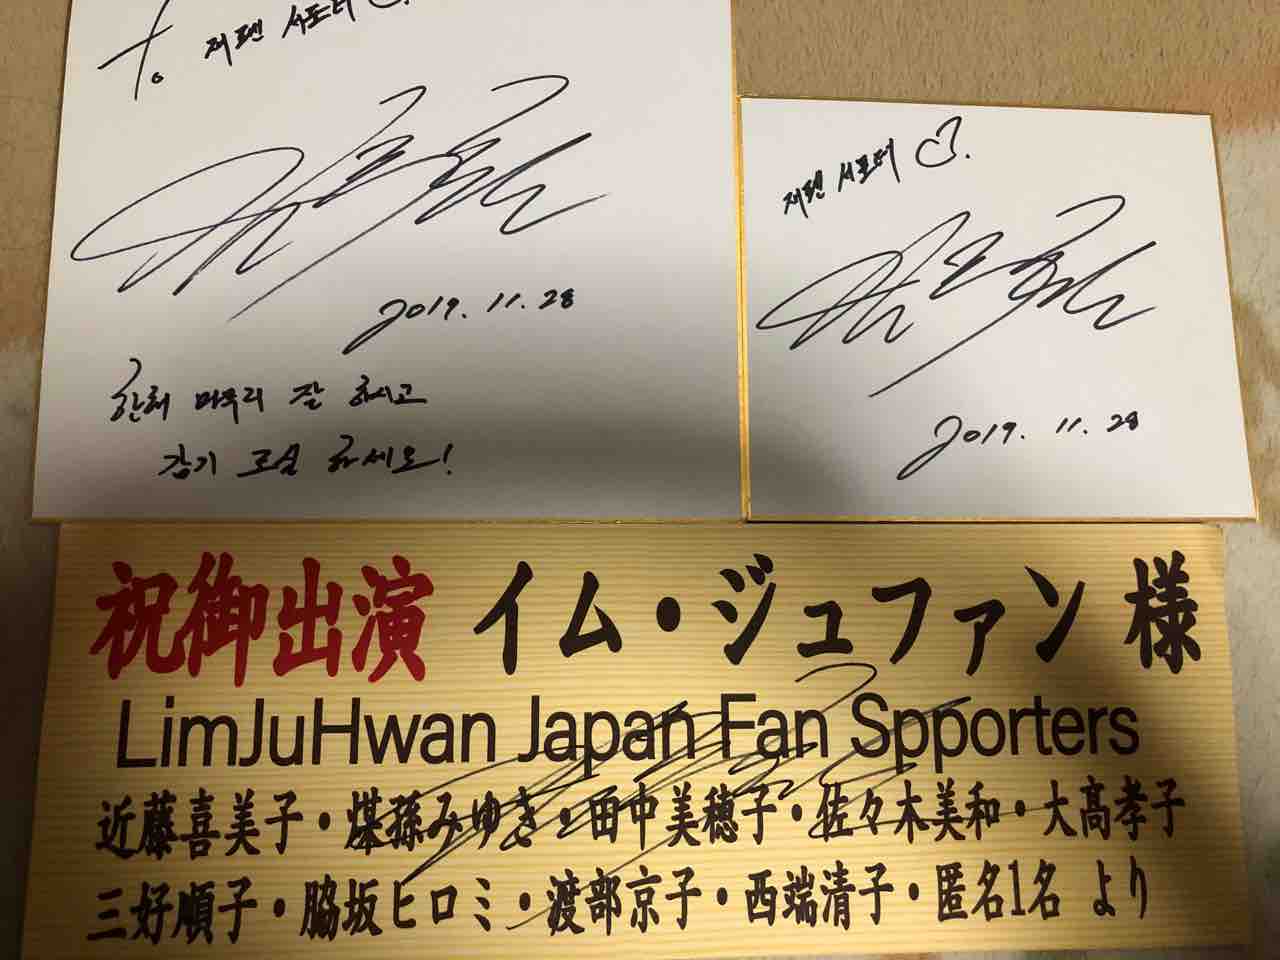 To. 재팬 서포터 ♡.
2019. 11. 28
한해 마무리 잘 하시고
감기 조심 하세요!
재팬 서포터 ♡.
2019. 11. 28
祝御出演 イム・ジュファン 様
LimJuHwan Japan Fan Spporters
近藤喜美子・煤孫みゆき・田中美穂子・佐々木美和・大高孝子
三好順子・脇坂ヒロミ・渡部京子・西端清子・匿名1名 より